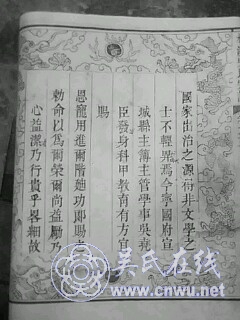 國家出治之源得非文學之
士不輕異為今寧國府宣
城縣主簿主管學事吳堯
臣發身科甲教育有方宜
賜
恩寵用進爾階廸功郎賜之
敕命以為爾榮爾尚益勵乃
心益潔乃行貴乎畧細故
吴氏在线
www.cnwu.net